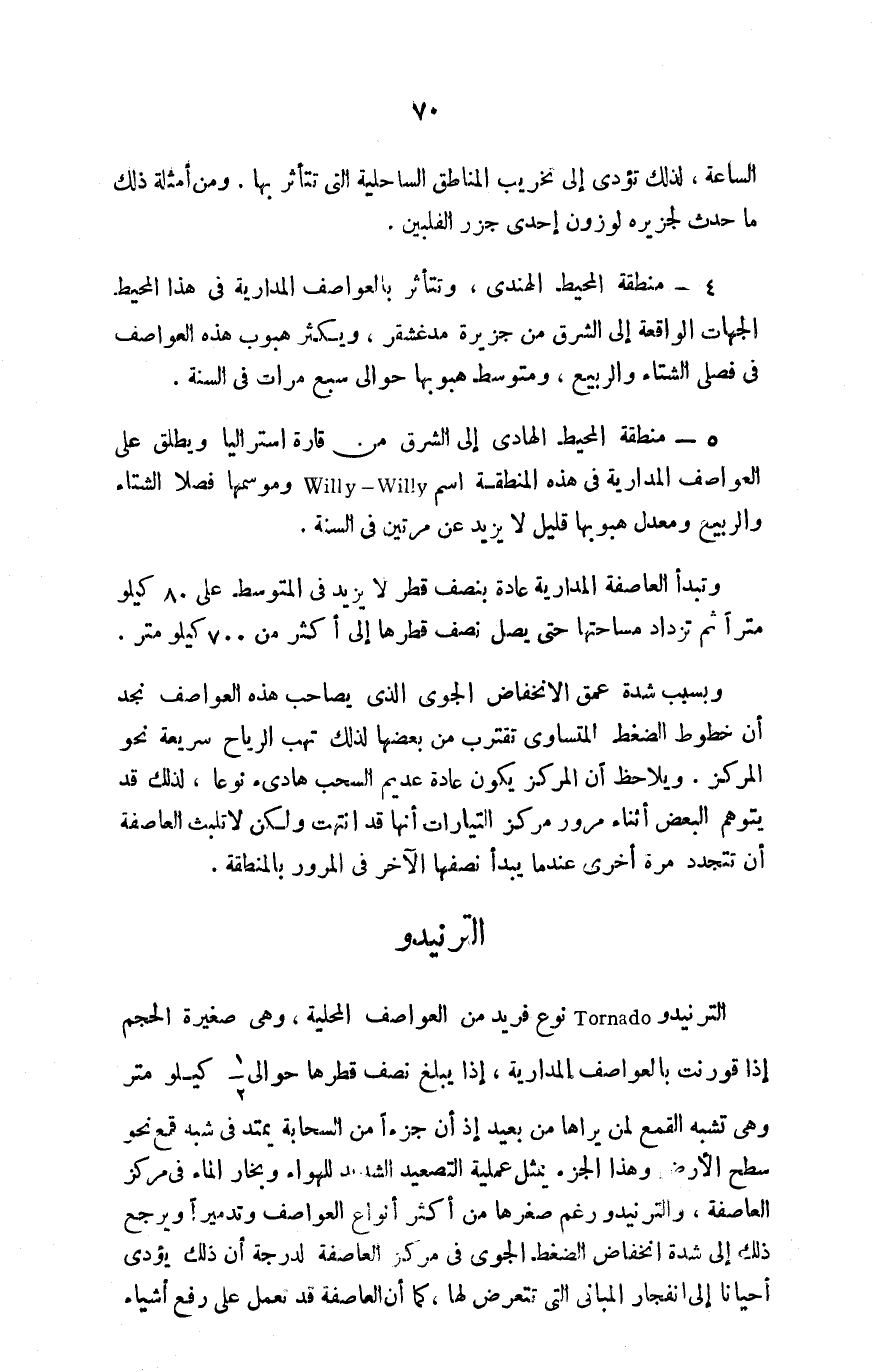 ٧٠
الساعة ، لذلك تؤدى إلى تخريب المناطق الساحلية التى تتأثر بها . ومن أمثلة ذلك
ما حدث لجزيره لوزون إحدى جزر الفلبين .
٤ – منطقة المحيط الهندى ، وتتأثر بالعواصف المدارية فى هذا المحيط
الجهات الواقعة إلى الشرق من جزيرة مدغشقر ، ويكثر هبوب هذه العواصف
فى فصلى الشتاء والربيع ، ومتوسط هبوبها حوالى سبع مرات فى السنة .
٥ – منطقة المحيط الهادى إلى الشرق من قارة استراليا ويطلق على
العواصف المدارية فى هذه المنطقة اسم Willy – Willy وموسمها فصلا الشتاء
والربيع ومعدل هبوبها قليل لا يزيد عن مرتين فى السنة .
وتبدأ العاصفة المدارية عادة بنصف قطر لا يزيد فى المتوسط على ٨٠ كيلو
متراً ثم تزداد مساحتها حتى يصل نصف قطرها إلى أكثر من ٧٠٠ كيلو متر .
وبسبب شدة عمق الانخفاض الجوى الذى يصاحب هذه العواصف نجد
أن خطوط الضغط المتساوى تقترب من بعضها لذلك تهب الرياح سريعة نحو
المركز . ويلاحظ أن المركز يكون عادة عديم السحب هادىء نوعا ، لذلك قد
يتوهم البعض أثناء مرور مركز التيارات أنها قد انتهت ولكن لاتلبث العاصفة
أن تتجدد مرة أخرى عندما يبدأ نصفها الآخر فى المرور بالمنطقة .
الترنيدو
الترنيدو Tornado نوع فريد من العواصف المحلية ، وهى صغيرة الحجم
إذا قورنت بالعواصف المدارية ، إذا يبلغ نصف قطرها حوالى ١/٢ كيلو متر
وهى تشبه القمع لمن يراها من بعيد إذ أن جزءاً من السحابة يمتد فى شبه قمع نحو
سطح الأرض وهذا الجزء يمثل عملية التصعيد الشديد للهواء وبخار الماء فى مركز
العاصفة ، والترنيدو رغم صغرها من أكثر أنواع العواصف وتدميراً ويرجع
ذلك إلى شدة انخفاض الضغط الجوى فى مركز العاصفة لدرجة أن ذلك يؤدى
أحيانا إلى انفجار المبانى التى تتعرض لها ، كما أن العاصفة قد تعمل على رفع أشياء